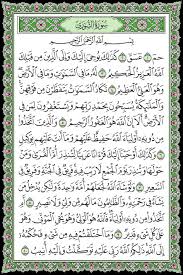 سُورَةُ الشُّورَىٰ
بِسْمِ اللَّهِ الرَّحْمَٰنِ الرَّحِيمِ
حمٓ ١ عٓسٓقٓ ٢ كَذَٰلِكَ يُوحِىٓ إِلَيْكَ وَإِلَى ٱلَّذِينَ مِن قَبْلِكَ
ٱللَّهُ ٱلْعَزِيزُ ٱلْحَكِيمُ ٣ لَهُۥ مَا فِى ٱلسَّمَٰوَٰتِ وَمَا فِى ٱلْأَرْضِ
وَهُوَ ٱلْعَلِىُّ ٱلْعَظِيمُ ٤ تَكَادُ ٱلسَّمَٰوَٰتُ يَتَفَطَّرْنَ مِن فَوْقِهِنَّ
وَٱلْمَلَٰٓئِكَةُ يُسَبِّحُونَ بِحَمْدِ رَبِّهِمْ وَيَسْتَغْفِرُونَ لِمَن فِى ٱلْأَرْضِ
أَلَآ إِنَّ ٱللَّهَ هُوَ ٱلْغَفُورُ ٱلرَّحِيمُ ٥ وَٱلَّذِينَ ٱتَّخَذُوا۟
مِن دُونِهِۦٓ أَوْلِيَآءَ ٱللَّهُ حَفِيظٌ عَلَيْهِمْ وَمَآ أَنتَ عَلَيْهِم بِوَكِيلٍ ٦
وَكَذَٰلِكَ أَوْحَيْنَآ إِلَيْكَ قُرْءَانًا عَرَبِيًّا لِّتُنذِرَ أُمَّ ٱلْقُرَىٰ وَمَنْ
حَوْلَهَا وَتُنذِرَ يَوْمَ ٱلْجَمْعِ لَا رَيْبَ فِيهِ فَرِيقٌ فِى ٱلْجَنَّةِ وَفَرِيقٌ
فِى ٱلسَّعِيرِ ٧ وَلَوْ شَآءَ ٱللَّهُ لَجَعَلَهُمْ أُمَّةً وَٰحِدَةً وَلَٰكِن يُدْخِلُ
مَن يَشَآءُ فِى رَحْمَتِهِۦ وَٱلظَّٰلِمُونَ مَا لَهُم مِّن وَلِىٍّ وَلَا نَصِيرٍ ٨
أَمِ ٱتَّخَذُوا۟ مِن دُونِهِۦٓ أَوْلِيَآءَ فَٱللَّهُ هُوَ ٱلْوَلِىُّ وَهُوَ يُحْىِ ٱلْمَوْتَىٰ وَهُوَ
عَلَىٰ كُلِّ شَىْءٍ قَدِيرٌ ٩ وَمَا ٱخْتَلَفْتُمْ فِيهِ مِن شَىْءٍ فَحُكْمُهُۥٓ
إِلَى ٱللَّهِ ذَٰلِكُمُ ٱللَّهُ رَبِّى عَلَيْهِ تَوَكَّلْتُ وَإِلَيْهِ أُنِيبُ ١٠